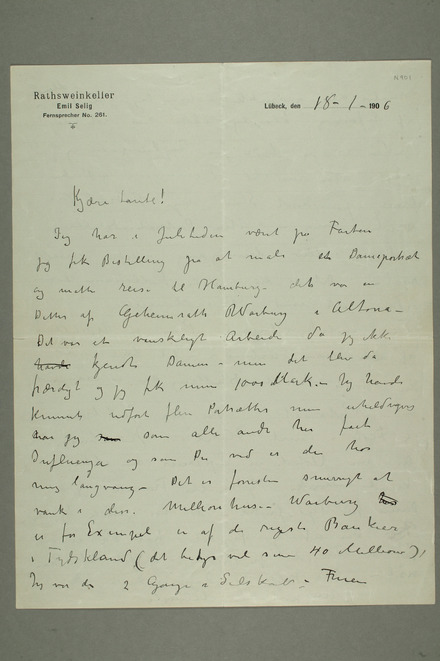 Rathsweinkeller
Emil Selig
Fernsprecher No. 261.
Lübeck, den 18-1-1906
Kjære tante!
Jeg har i Juletiden været paa Farten
jeg fik Bestilling paa at male et Dameportræt
og måtte reise til Hamburg - dets var en
Datter af Geheimrath Warburg i Altona -
Det var et vanskeligt Arbeide da jeg ikke
havde kjendte Damen - men det blev da
færdigt og jeg fik mine 1000 Mark. - Jeg havde
kunnet udført flere Portrætter men uheldigvis
har jeg som som alle andre her fået
Influenza og som Du ved er den hos
mig langvarig - Det er forresten snurrigt at
vanke i disse Millionhuse - Warburg
er for Exempel en af de rigeste Bankier
i Tydskland (det betyr vel sine 40 Millioner),
Jeg var der 2 Gange i Selskab - Fruen